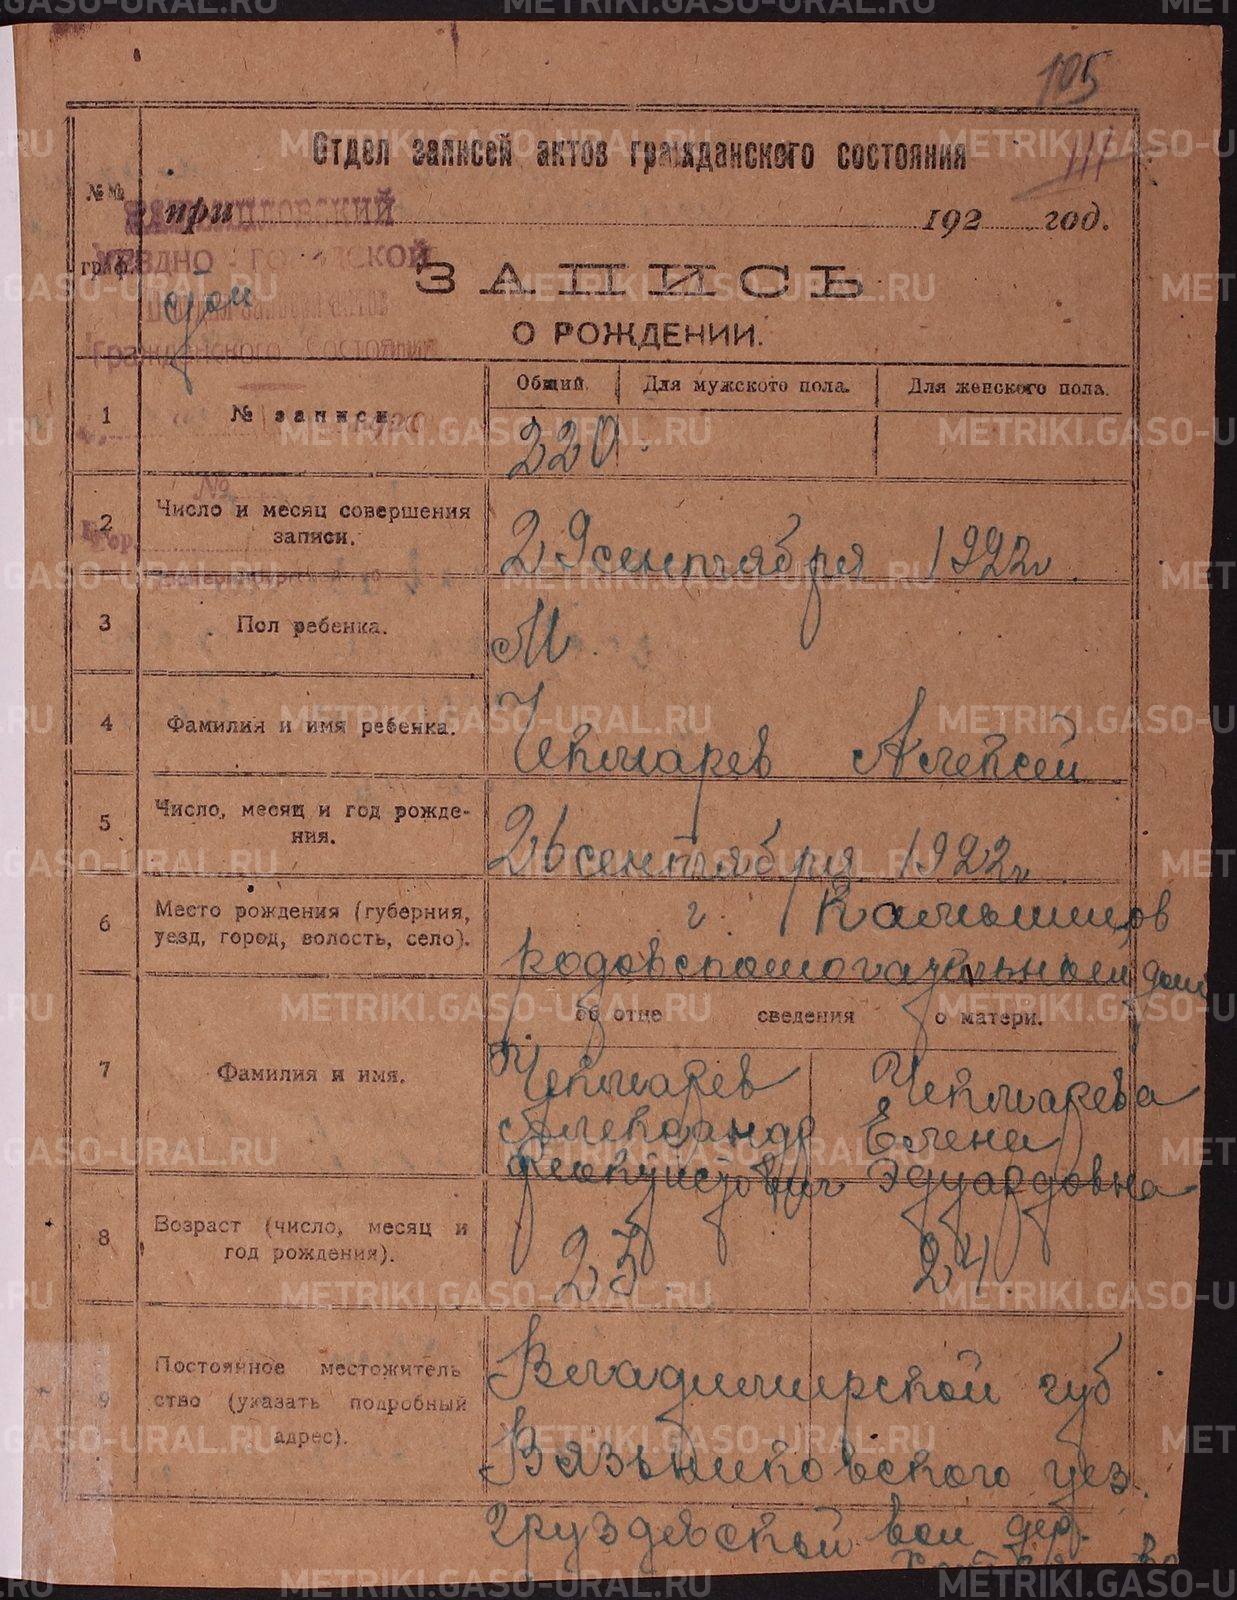 105
111
Отдел записей актов гражданского состояния
№№
граф.
при 192 год.
УЕЗДНО - ГОРОДСКОЙ
ЗАПИСЬ
гражданского состояния
О РОЖДЕНИИ.
Общий. Для мужского пола. Для женского пола.
1 № записи. 220
№
2 Число и месяц совершения записи. 29 сентября 1922 г.
3 Пол ребенка. М.
4 Фамилия и имя ребенка. Чекмарев Алексей
5 Число, месяц и год рожде-
ния. 26 сентября 1922 г.
6 Место рождения (губерния, г. Камышлов
уезд, город, волость, село). родовспомогательный дом
об отце сведения о матери.
7 Фамилия и имя. Чекмарев Чекмарева
Александр Елена
Феоктистович Эдуардовна
8 Возраст (число, месяц и
год рождения). 23 24
9 Постоянное местожитель
ство (указать подробный
адрес). Владимирской губ
Вязьниковского уез.
Груздевской вол дер.
METRIKI.GASO-URAL.RU